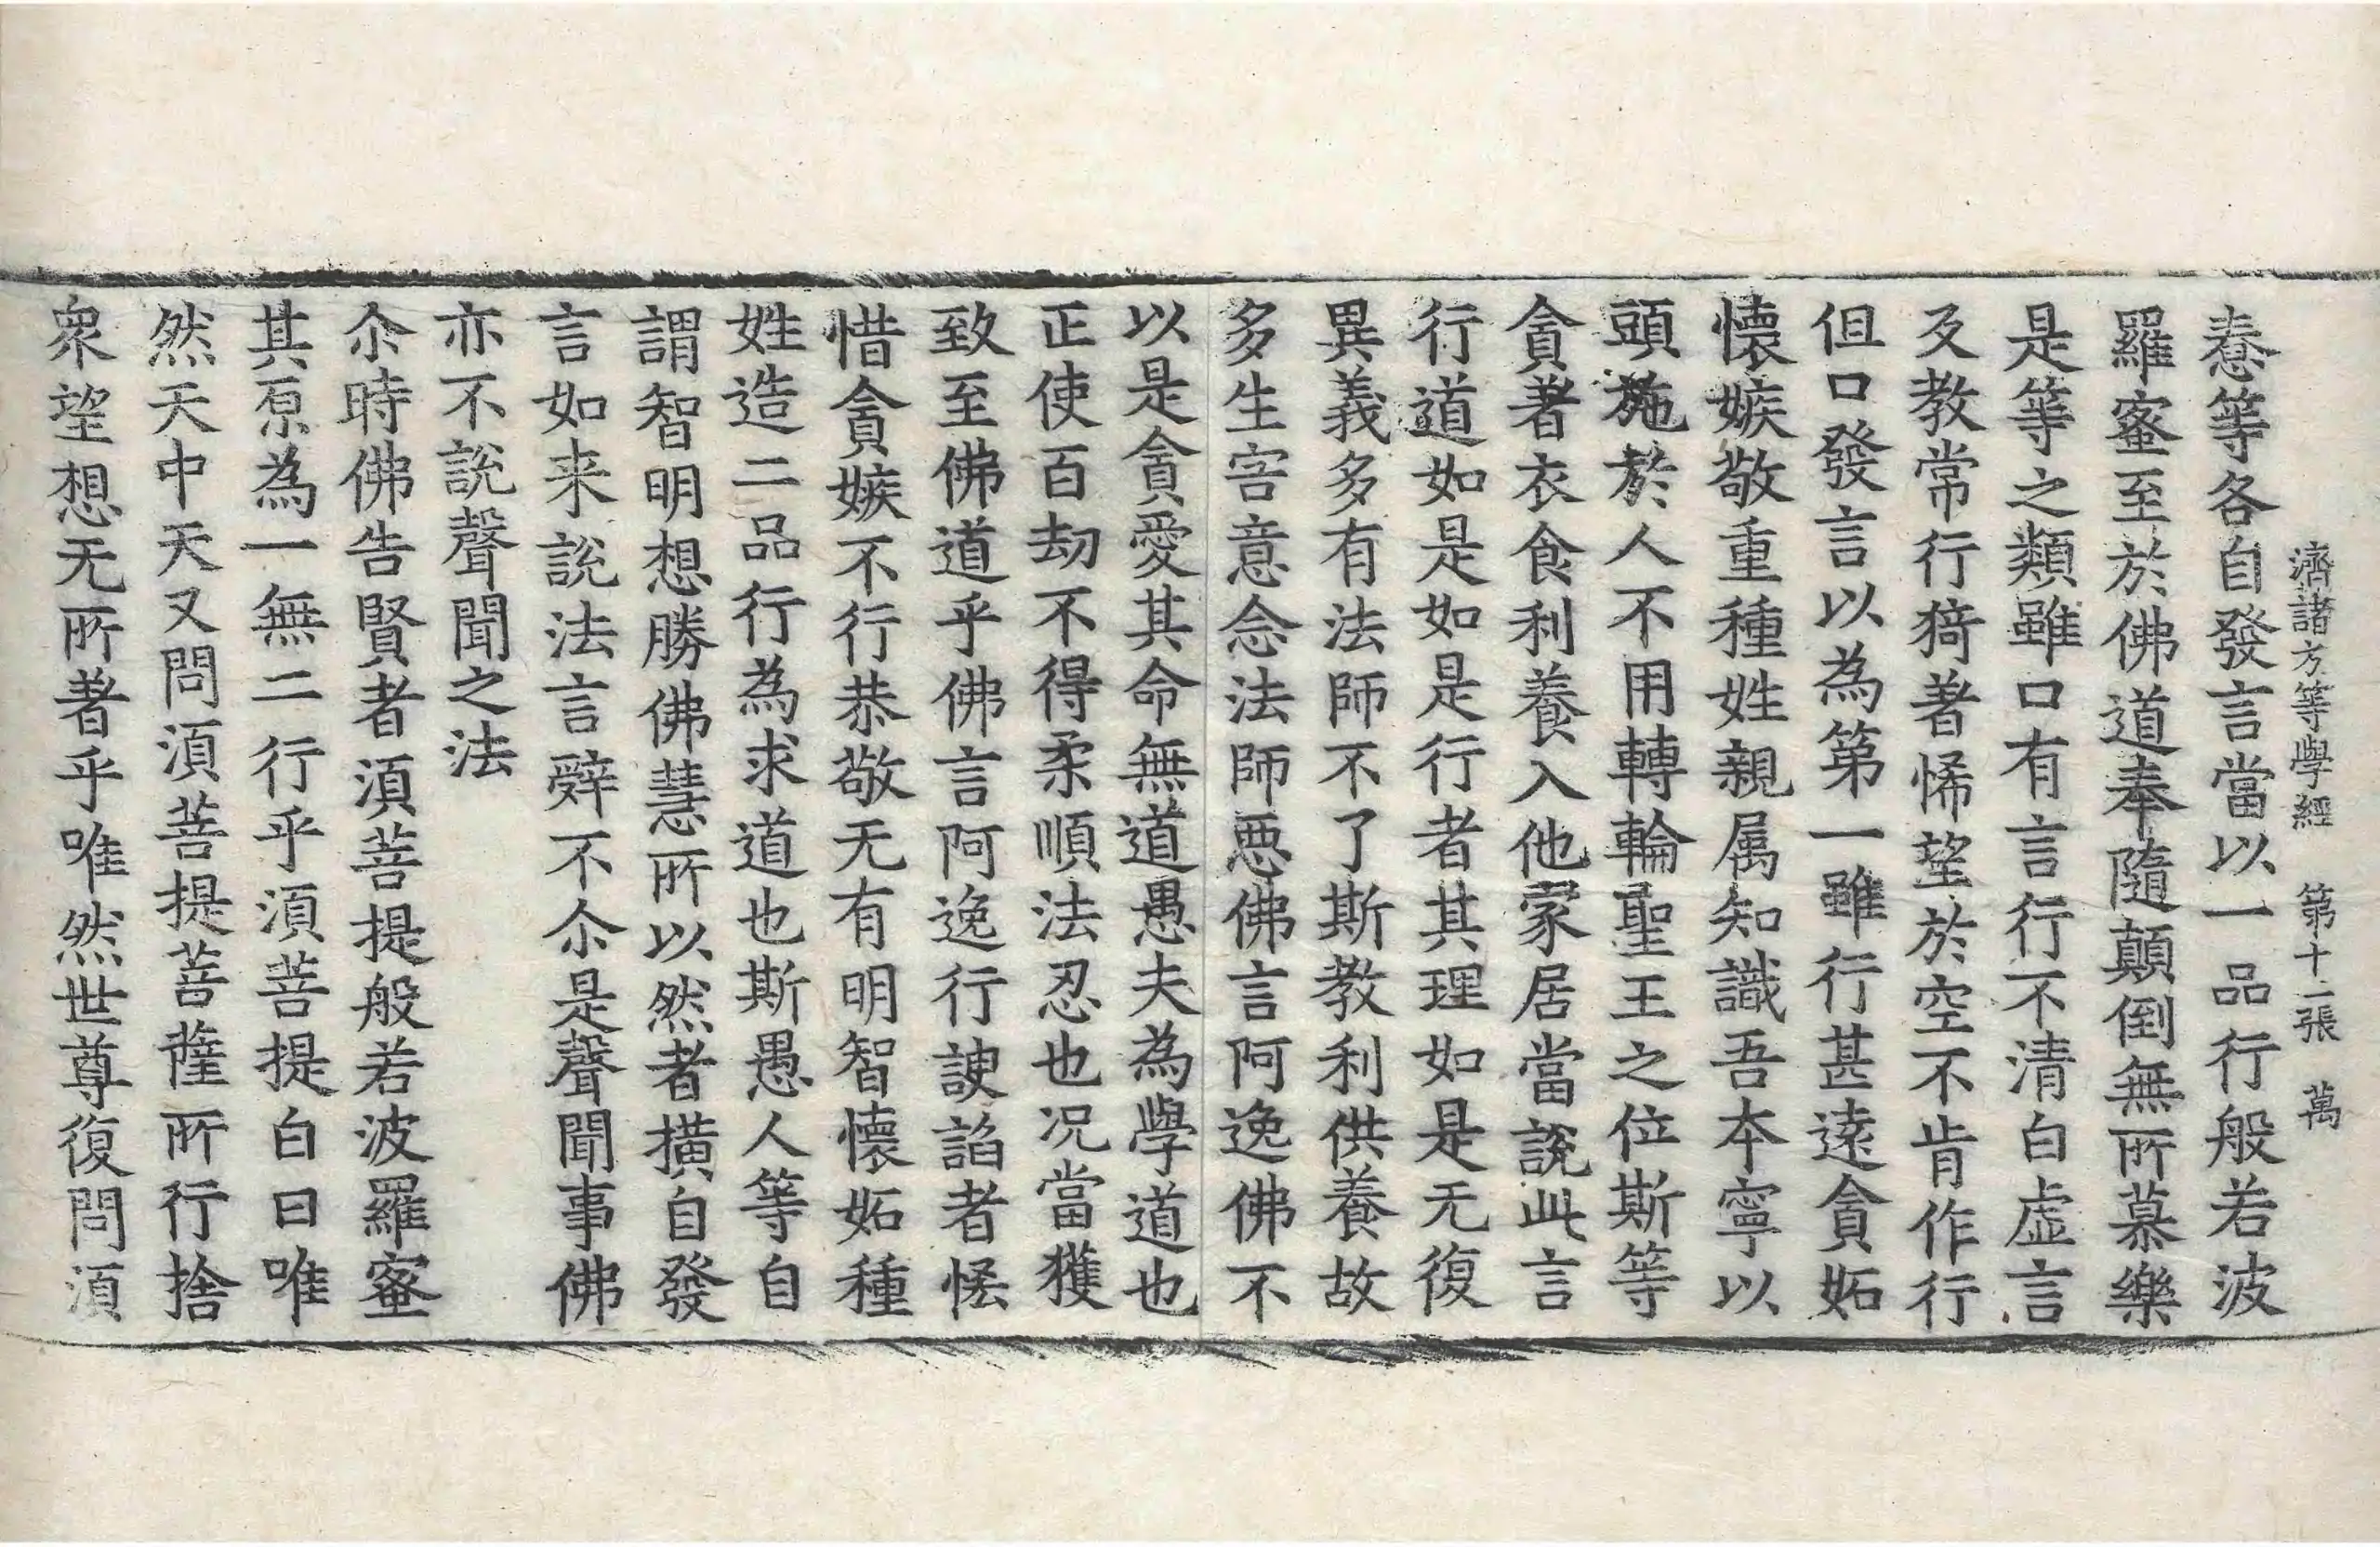 濟諸方等學經 第十二張 萬
惷等各自發言當以一品行般若波
羅蜜至於佛道奉隨顛倒無所慕樂
是等之類雖口有言行不清白虛言
及教常行猗著悕望於空不肯作行
但口發言以為第一雖行甚遠貪妬
懷嫉敬重種姓親属知識吾本寧以
頭施於人不用轉輪聖王之位斯等
貪著衣食利養入他家居當說此言
行道如是如是行者其理如是无復
異義多有法師不了斯教利供養故
多生害意念法師惡佛言阿逸佛不
以是貪愛其命無道愚夫為學道也
正使百劫不得柔順法忍也况當獲
致至佛道乎佛言阿逸行諛諂者恡
惜貪嫉不行恭敬无有明智懷妬種
姓造二品行為求道也斯愚人等自
謂智明想勝佛慧所以然者撗自發
言如来說法言辝不尒是聲聞事佛
亦不說聲聞之法
尒時佛告賢者湏菩提般若波羅蜜
其原為一無二行乎湏菩提白曰唯
然天中天又問湏菩提菩薩所行捨
衆望想无所著乎唯然世尊復問湏